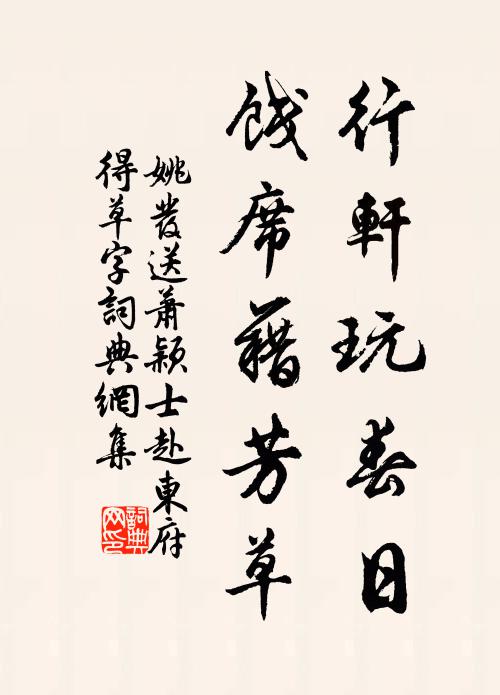 行軒玩春日
餞席藉芳草
姚發送蕭穎士赴東府
得草字詞典網集
詞典網印